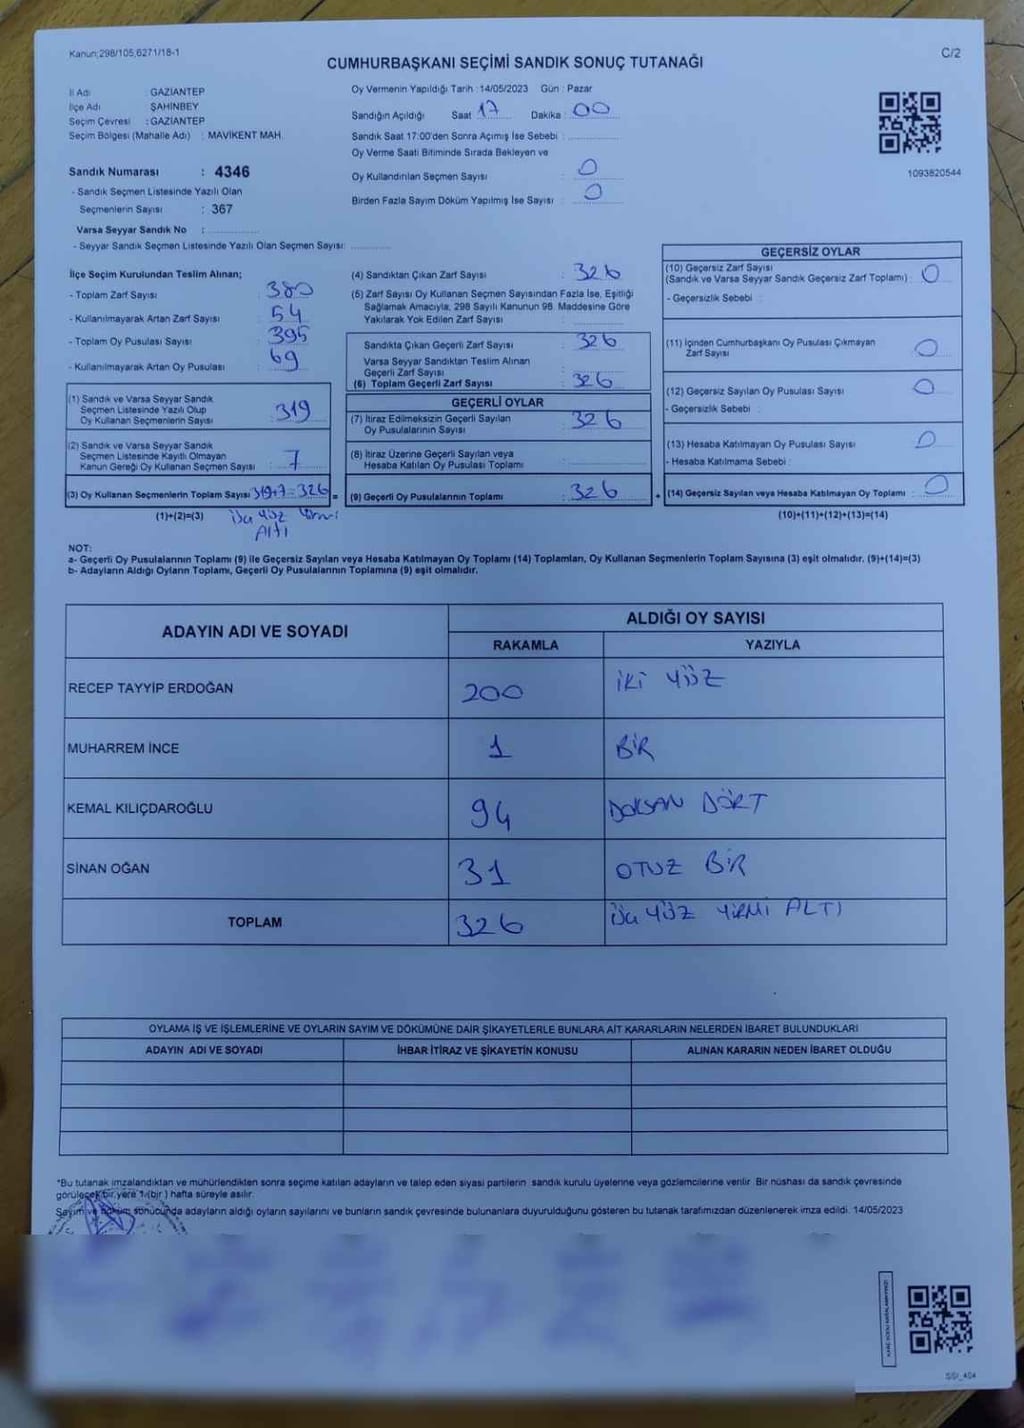 Kanun;298/105,6271/18-1
C/2
CUMHURBAŞKANI SEÇİMİ SANDIK SONUÇ TUTANAĞI
İl Adı : GAZİANTEP
İlçe Adı : ŞAHİNBEY
Seçim Çevresi : GAZİANTEP
Seçim Bölgesi (Mahalle Adı) : MAVİKENT MAH.
Oy Vermenin Yapıldığı Tarih : 14/05/2023 Gün : Pazar
Sandığın Açıldığı Saat 17 Dakika : 00
Sandık Saat 17:00'den Sonra Açımış İse Sebebi :
Oy Verme Saati Bitiminde Sırada Bekleyen ve
Oy Kullandırılan Seçmen Sayısı : 0
Birden Fazla Sayım Döküm Yapılmış İse Sayısı : 0
1093820544
Sandık Numarası : 4346
- Sandık Seçmen Listesinde Yazılı Olan
Seçmenlerin Sayısı : 367
Varsa Seyyar Sandık No :
- Seyyar Sandık Seçmen Listesinde Yazılı Olan Seçmen Sayısı:
İlçe Seçim Kurulundan Teslim Alınan;
- Toplam Zarf Sayısı : 380
- Kullanılmayarak Artan Zarf Sayısı : 54
- Toplam Oy Pusulası Sayısı : 395
- Kullanılmayarak Artan Oy Pusulası : 69
(1) Sandık ve Varsa Seyyar Sandık
Seçmen Listesinde Yazılı Olup
Oy Kullanan Seçmenlerin Sayısı : 319
(2) Sandık ve Varsa Seyyar Sandık
Seçmen Listesinde Kayıtlı Olmayan
Kanun Gereği Oy Kullanan Seçmen Sayısı : 7
(3) Oy Kullanan Seçmenlerin Toplam Sayısı 319+7=326 =
(1)+(2)=(3)
üç yüz yirmi
Altı
(4) Sandıktan Çıkan Zarf Sayısı : 326
(5) Zarf Sayısı Oy Kullanan Seçmen Sayısından Fazla İse, Eşitliği
Sağlamak Amacıyla, 298 Sayılı Kanunun 98. Maddesine Göre
Yakılarak Yok Edilen Zarf Sayısı :
Sandıkta Çıkan Geçerli Zarf Sayısı : 326
Varsa Seyyar Sandıktan Teslim Alınan
Geçerli Zarf Sayısı :
(6) Toplam Geçerli Zarf Sayısı : 326
GEÇERLİ OYLAR
(7) İtiraz Edilmeksizin Geçerli Sayılan
Oy Pusulalarının Sayısı : 326
(8) İtiraz Üzerine Geçerli Sayılan veya
Hesaba Katılan Oy Pusulası Toplamı :
(9) Geçerli Oy Pusulalarının Toplamı : 326 +
GEÇERSİZ OYLAR
(10) Geçersiz Zarf Sayısı
(Sandık ve Varsa Seyyar Sandık Geçersiz Zarf Toplamı) : 0
- Geçersizlik Sebebi :
(11) İçinden Cumhurbaşkanı Oy Pusulası Çıkmayan
Zarf Sayısı : 0
(12) Geçersiz Sayılan Oy Pusulası Sayısı : 0
- Geçersizlik Sebebi :
(13) Hesaba Katılmayan Oy Pusulası Sayısı : 0
- Hesaba Katılmama Sebebi :
(14) Geçersiz Sayılan veya Hesaba Katılmayan Oy Toplamı : 0
(10)+(11)+(12)+(13)=(14)
NOT:
a- Geçerli Oy Pusulalarının Toplamı (9) ile Geçersiz Sayılan veya Hesaba Katılmayan Oy Toplamı (14) Toplamları, Oy Kullanan Seçmenlerin Toplam Sayısına (3) eşit olmalıdır. (9)+(14)=(3)
b- Adayların Aldığı Oyların Toplamı, Geçerli Oy Pusulalarının Toplamına (9) eşit olmalıdır.
ADAYIN ADI VE SOYADI
ALDIĞI OY SAYISI
RAKAMLA YAZIYLA
RECEP TAYYİP ERDOĞAN 200 İKİ YÜZ
MUHARREM İNCE 1 BİR
KEMAL KILIÇDAROĞLU 94 DOKSAN DÖRT
SİNAN OĞAN 31 OTUZ BİR
TOPLAM 326 üç YÜZ YİRMİ ALTI
OYLAMA İŞ VE İŞLEMLERİNE VE OYLARIN SAYIM VE DÖKÜMÜNE DAİR ŞİKAYETLERLE BUNLARA AİT KARARLARIN NELERDEN İBARET BULUNDUKLARI
ADAYIN ADI VE SOYADI İHBAR İTİRAZ VE ŞİKAYETİN KONUSU ALINAN KARARIN NEDEN İBARET OLDUĞU
*Bu tutanak imzalandıktan ve mühürlendikten sonra seçime katılan adayların ve talep eden siyasi partilerin sandık kurulu üyelerine veya gözlemcilerine verilir. Bir nüshası da sandık çevresinde
görülecek bir yere 1 (bir) hafta süreyle asılır.
Sayım ve döküm sonucunda adayların aldığı oyların sayılarını ve bunların sandık çevresinde bulunanlara duyurulduğunu gösteren bu tutanak tarafımızdan düzenlenerek imza edildi. 14/05/2023